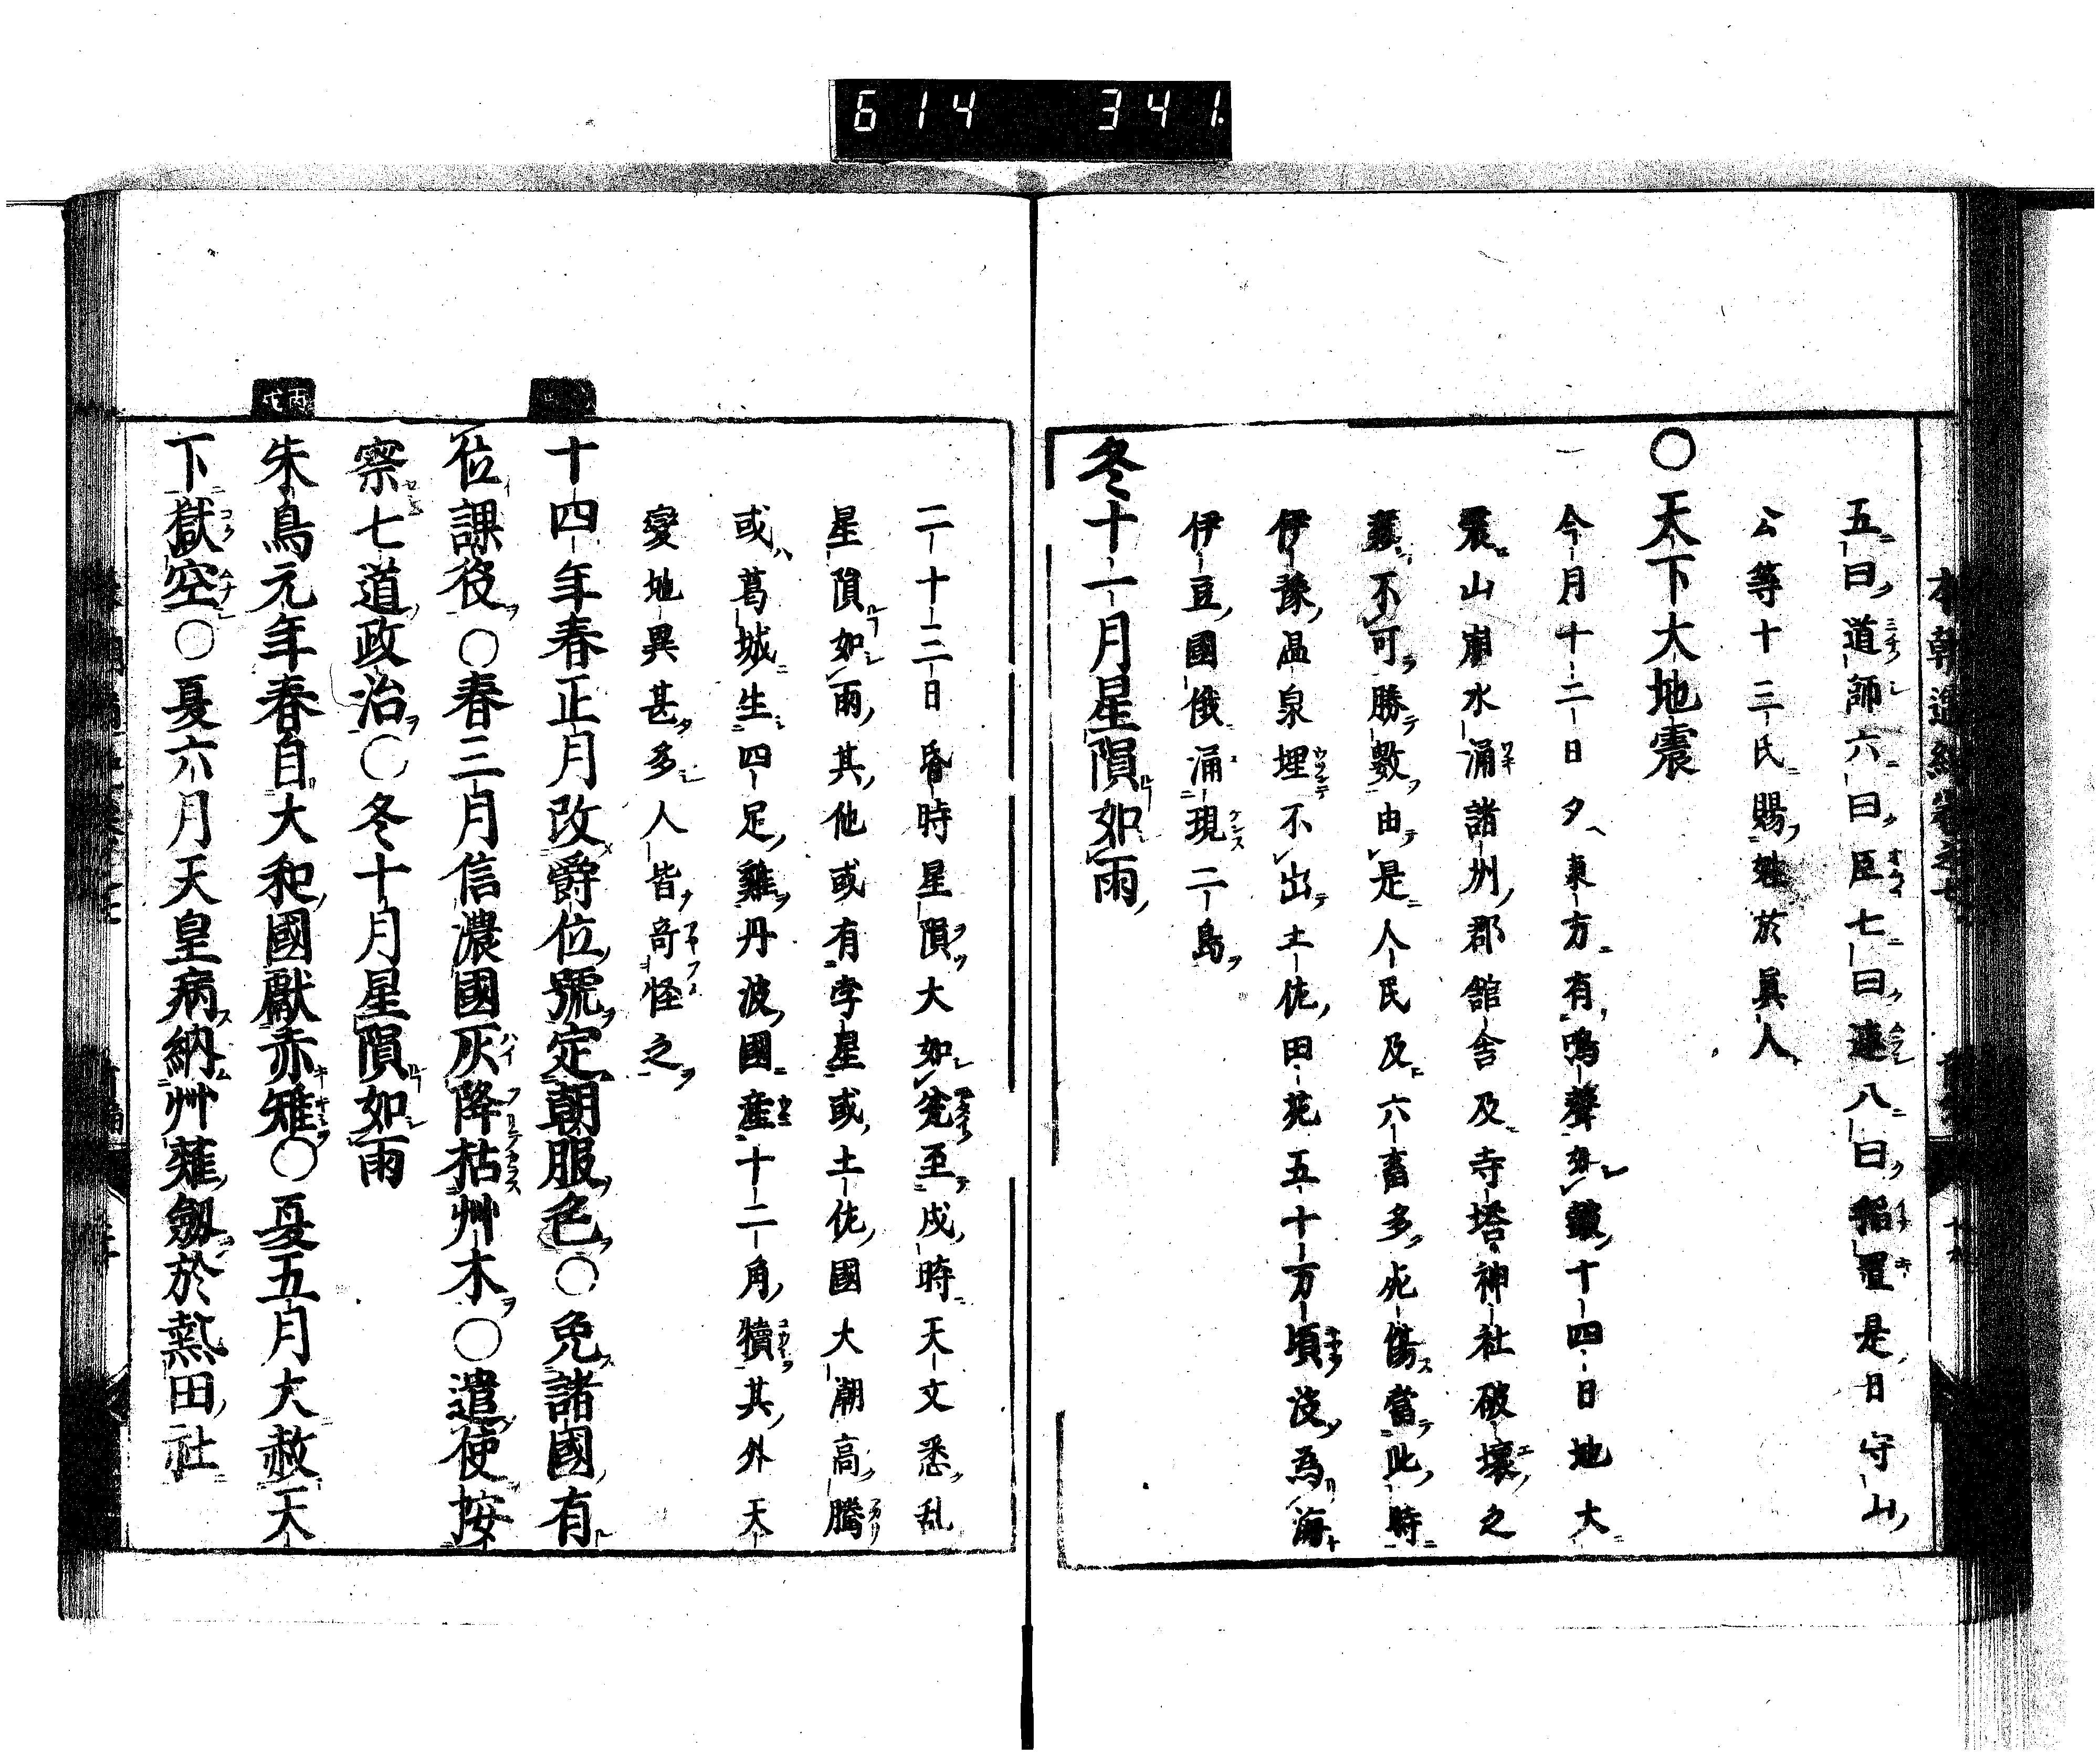 614 341.
五曰道師六曰臣七曰連八曰稲置是日守山
公等十三氏賜姓於眞人
○天下大地震
今月十二日夕東方有鳴聲如鼓十四日地大
震山崩水涌諸州郡館舎及寺塔神社破壊之
類不可勝數由是人民及六畜多死傷當此時
伊豫温泉埋不出土佐田苑五十万頃没為海
伊豆國俄涌現二島
冬十一月星隕如雨
二十三日昏時星隕大如瓮至戌時天文悉乱
星隕如雨其他或有孛星或土佐國大潮高騰
或葛城生四足雞丹波國産十二角犢其外天
變地異甚多人皆奇怪之
十四年春正月改爵位號定朝服色○免諸國有
位課役○春三月信濃國灰降枯艸木○遣使按
察七道政治○冬十月星隕如雨
丙戌
朱鳥元年春自大和國獻赤雉○夏五月大赦天
下獄空○夏六月天皇病納艸薙劔於熱田社